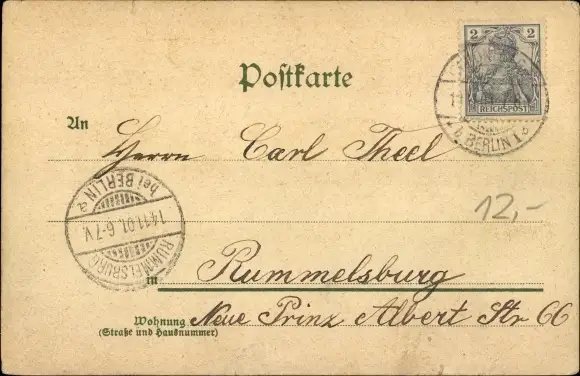 Postkarte
2
REICHSPOST
BERLIN 1
An
Herrn Carl Theel
RUMMELSBURG
14.11.01. 6-7V.
bei BERLIN a
12,-
in Rummelsburg
Wohnung Neue Prinz Albert Str 66
(Straße und Hausnummer)